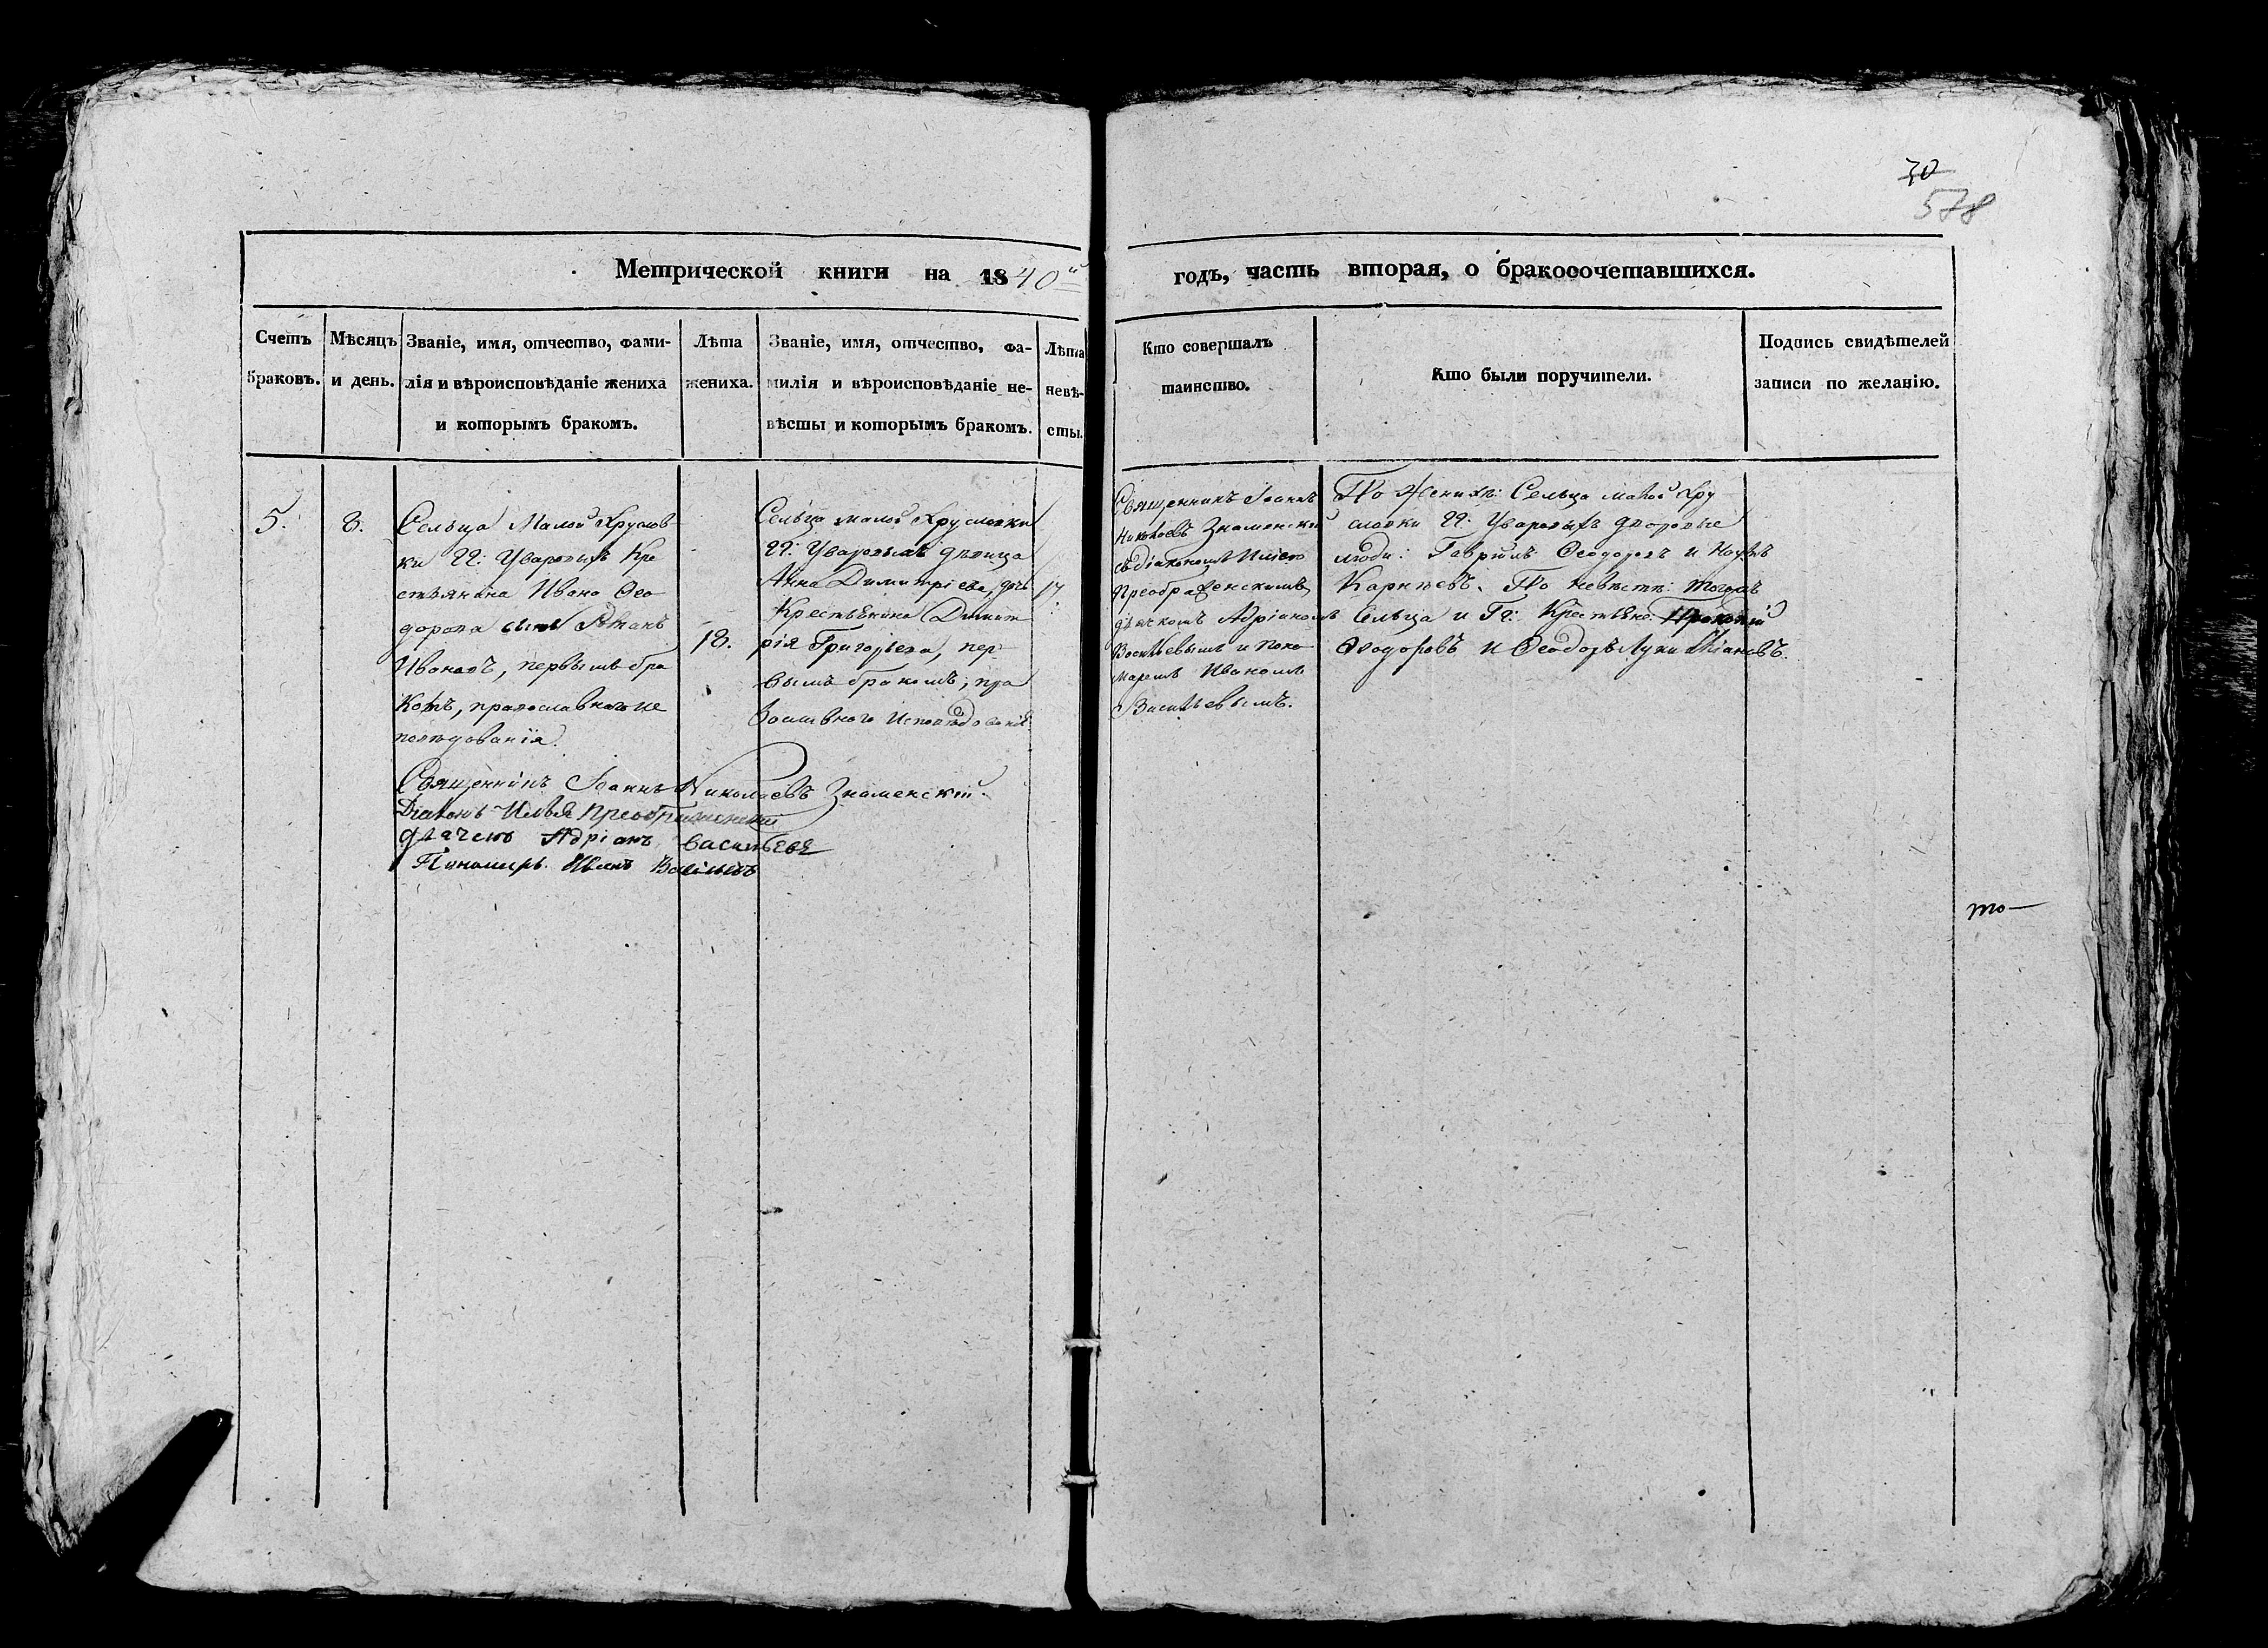 30
578
Метрической книги на 1840й годъ, часть вторая, о бракосочетавшихся.
Счетъ браковъ.
Мѣсяцъ и день.
Званіе, имя, отчество, фами-
лія и вѣроисповѣданіе жениха
и которымъ бракомъ.
Лѣта жениха.
Званіе, имя, отчество, фа-
милія и вѣроисповѣданіе не-
вѣсты и которымъ бракомъ.
Лѣта невѣ-
сты.
Кто совершалъ
таинство.
Кто были поручители.
Подпись свидѣтелей
записи по желанію.
5.
8.
Сельца Малой Хрущов-
ки гг: Уваровыхъ Кре
стьянина Ивана Ѳео
дорова сынъ
Ивановъ, первымъ бра
комъ, православнаго ис
повѣдованія.
18.
Сельца малой
гг: Уваровыхъ дѣвица
Анна Димитріева, дочь
Крестьянина Димит
рія Григорьева, пер
вымъ бракомъ, пра
вославнаго исповѣдованія
17
Священникъ Іоаннъ
Николаевъ Знаменскій
съ діакономъ Иліею
Преображенскимъ
дьячкомъ Адріаномъ
Васильевымъ и поно
маремъ Иваномъ
Васильевымъ.
По женихѣ: Сельца малой Хру
гг: Уваровыхъ дворовые
люди: Гавріилъ Ѳеодоровъ и Наумъ
Карнѣевъ. По невѣстѣ: тогожъ
Сельца и Гг: Крестьяне Прокопій
Ѳеодоровъ и Ѳеодоръ
Священникъ Іоаннъ Николаевъ Знаменскій.
Діаконъ Илья Преображенский
дьячекъ Адріанъ Васильевъ
Пономарь Иванъ Васильевъ
то—